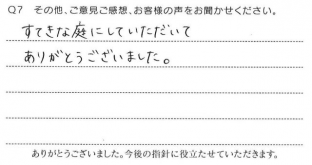 Q7 その他、ご意見ご感想、お客様の声をお聞かせください。
すてきな庭にしていただいて
ありがとうございました。
ありがとうございました。今後の指針に役立たせていただきます。